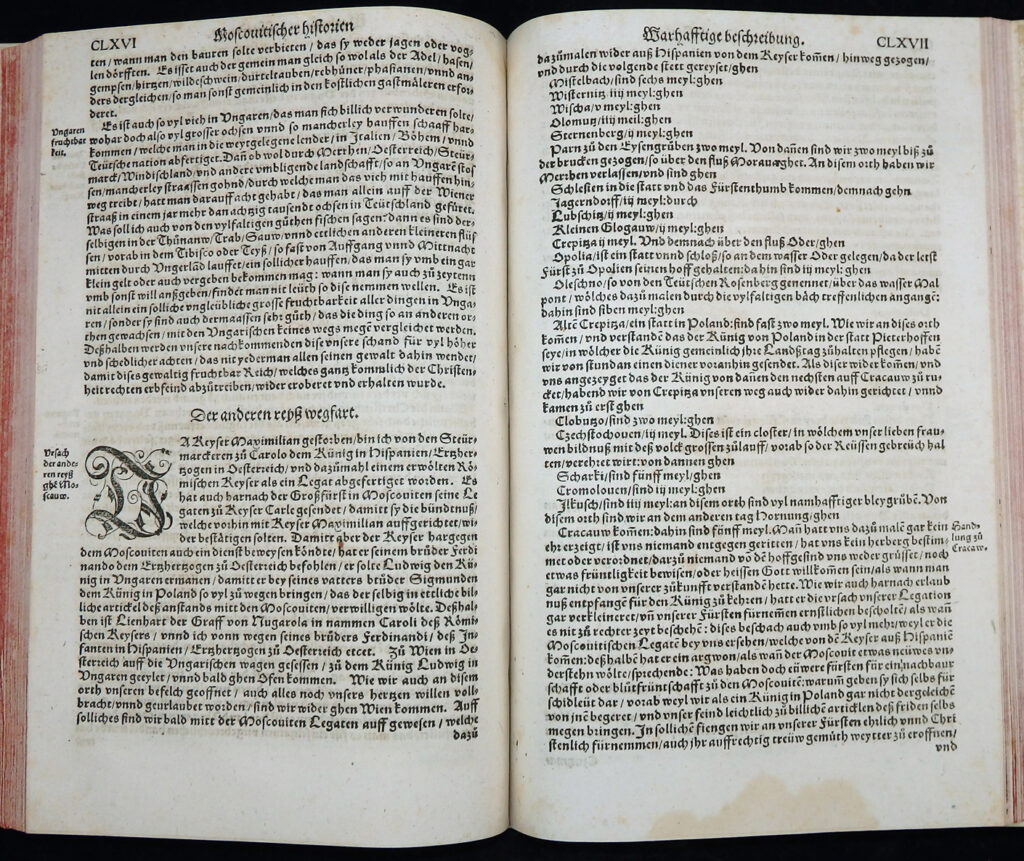 CLXVI
Moscouitischer historien
ten/wann man den bauren solte verbieten/das sy weder jagen oder vog-
len dörfften. Es isset auch der gemein man gleich so wol als der Adel/hasen/
gempsen/hirtzen/wildeschwein/durteltauben/rebhüner/phasianen/vnnd an-
ders dergleichen/so man sonst gemeinlich in den kostlichen gastmäleren erfor-
deret.
Vngaren
fruchtbar
keit.
Es ist auch so vyl vieh in Vngaren/das man sich billich verwunderen solte/
wohar doch also vyl grosser ochsen vnnd so mancherley hauffen schaaff har-
kommen/welche man in die weyt gelegene lender/in Italien/Böhem/vnnd
Teütsche nation abfertiget. Dañ ob wol durch Merrhn/Oesterreich/Steür-
marck/Windischland/vnd andere vmbligende landschafft/so an Vngarẽ stos
sen/mancherley straassen gohnd/durch welche man das vieh mit hauffen hin-
weg treibt/hatt man darauff acht gehabt/das man allein auff der Wiener
straaß in einem jar mehr dan achtzig tausendt ochsen in Teütschland gefüret.
Was soll ich auch von den vylfaltigen güthen fischen sagen? dann es sind der-
selbigen in der Thůnauw/Trab/Sauw/vnnd ettlichen anderen kleineren flüs
sen/vorab in dem Tibisco oder Teyß/so fast von Auffgang vnnd Mittnacht
mitten durch Vngerlãd lauffet/ein sollicher hauffen/das man sy vmb ein gar
klein gelt oder auch vergeben bekommen mag: wann man sy auch zů zeyten
vmb sonst will anßgeben/findet man nit leüth so dise nemmen wellen. Es ist
nit allein ein solliche vngleübliche grosse fruchtbarkeit aller dingen in Vnga-
ren/sonder sy sind auch dermaassen sehr gůth/das die ding so an anderen or-
then gewachsen/mit den Vngarischen keines wegs megẽ vergleichet werden.
Deßhalben werden vnsere nachkommenden dise vnsere schand für vyl höher
vnd schedlicher achten/das nit yederman allen seinen gewalt dahin wendet/
damit dises gewaltig fruchtbar Reich/welches gantz kommlich der Christen-
heit rechten erbfeind abzůtreiben/wider eroberet vnd erhalten wurde.
Der anderen reyß wegfart.
Vrsach
der ande-
ren reyß
ghẽ Mo-
scauw.
DA Keyser Maximilian gestorben/bin ich von den Steür-
marckeren zů Carolo dem Künig in Hispanien/Ertzher-
tzogen in Oesterreich/vnd dazůmal einem erwölten Rö-
mischen Keyser als ein Legat abgefertiget worden. Es
hat auch harnach der Großfürst in Moscouiten seine Le
gaten zů Keyser Carle gesendet/damitt sy die bündtnuß/
welche vorhin mit Keyser Maximilian auffgerichtet/wi-
der bestätigen solten. Damitt aber der Keyser hargegen
dem Moscouiten auch ein dienst beweysen köndte/hat er seinem brůder Ferdi
nando dem Ertzhertzogen zů Oesterreich befohlen/er solte Ludwig den Kü-
nig in Vngaren ermanen/damitt er bey seines vatters brůder Sigmunden
dem Künig in Poland so vyl zů wegen bringen/das der selbig in ettliche bil-
liche artickel deß anstands mitt den Moscouiten/verwilligen wölte. Deßhal-
ben ist Lienhart der Graff von Nugarola in nammen Caroli deß Römi-
schen Keysers/vnnd ich vonn wegen seines brůders Ferdinandi/deß In-
fanten in Hispanien/Ertzhertzogen zů Oesterreich etcet. Zů Wien in Oe-
sterreich auff die Vngarischen wagen gesessen/zů dem Künig Ludwig in
Vngaren geeylet/vnnd bald ghen Ofen kommen. Wie wir auch an disem
orth vnseren befelch geoffnet/auch alles noch vnsers hertzen willen voll-
bracht/vnnd geurlaubet worden/sind wir wider ghen Wien kommen. Auff
solliches sind wir bald mitt der Moscouiten Legaten auff gewesen/welche
dazů
Warhafftige beschreibung.
CLXVII
dazůmalen wider auß Hispanien von dem Keyser komẽn/hin weg gezogen/
vnd durch die volgende stett gereyset/ghen
Mistelbach/sind sechs meyl:ghen
Wisternitz iiij meyl:ghen
Wischa/v meyl:ghen
Olomutz/iiij meil:ghen
Sternenberg/ij meyl:ghen
Parn zů den Eysengrůben zwo meyl. Von dañen sind wir zwo meyl biß zů
der brucken gezogen/so über den fluß Morauaghet. An disem orth haben wir
Merrhen verlassen/vnd sind ghen
Schlesien in die statt vnd das Fürstenthumb kommen/demnach gehn
Jagerndorff/iij meyl:durch
Lubschitz/ij meyl:ghen
Kleinen Glogauw/ij meyl:ghen
Crepitza ij meyl. Vnd demnach über den fluß Oder/ghen
Opolia/ist ein statt vnnd schloß/so an dem wasser Oder gelegen/da der letst
Fürst zů Opolien seinen hoff gehalten:dahin sind iij meyl:ghen
Oleschno/so von den Teütschen Rosenberg genennet/über das wasser Mal
pont/wölches dazů malen durch die vylfaltigen bäch treffenlichen angangẽ:
dahin sind siben meyl:ghen
Altẽ Crepitza/ein statt in Poland:sind fast zwo meyl. Wie wir an dises orth
komẽn/vnd verstandẽ das der Künig von Poland in der statt Pieterhoffen
seye/in wölcher die Künig gemeinlich jhre Landßtag zůhalten pflegen/habẽ
wir von stund an einen diener voranhin gesendet. Als diser wider komẽn/vnd
vns angezeyget das der Künig von dañen den nechsten auff Cracauw zů ru-
cket/habend wir von Crepitza vnseren weg auch wider dahin gerichtet/vnnd
kamen zů erst ghen
Clobutzo/sind zwo meyl:ghen
Czechstochouen/iij meyl. Dises ist ein closter/in wölchem vnser lieben frau-
wen bildnuß mit deß volck grossen zůlauff/vorab so der Reüssen gebreüch hal
ten/verehret wirt:von dannen ghen
Scharki/sind fünff meyl/ghen
Cromolouen/sind iij meyl:ghen
Ilkusch/sind iiij meyl:an disem orth sind vyl namhafftiger bleygrůbẽ. Von
disem orth sind wir an dem anderen tag Hornung/ghen
Cracauw komẽn:dahin sind fünff meyl. Man hatt vns dazů malẽ gar kein
ehr erzeigt/ist vns niemand entgegen geritten/hat vns kein herberg bestim-
met oder verordnet/darzů niemand võ dẽ hoffgesind vns weder grůsset/noch
etwas früntligkeit bewisen/oder heissen Gott willkomẽn sein/als wann man
gar nicht von vnserer zůkunfft verstandẽ hette. Wie wir auch harnach erlaub
nuß entpfangẽ für den Künig zů kehren/hatt er die vrsach vnserer Legation
gar verkleineret/vñ vnserer Fürsten fürnemẽn ernstlichen bescholtẽ/als wañ
es nit zů rechter zeyt beschehẽ: dises beschach auch vmb so vyl mehr/weyl er die
Moscouitischen Legatẽ bey vns ersehen/welche von dẽ Keyser auß Hispaniẽ
komẽn:deßhalbẽ hat er ein argwon/als wañ der Moscouit etwas neüwes vn-
derstehn wölte/sprechende: Was haben doch eüwere fürsten für ein nachbaur
schafft oder blůtfrüntschafft zů den Moscouitẽ:warumb geben sy sich selbs für
schidleüt dar/vorab weyl wir als ein Künig in Poland gar nicht dergeleichẽ
von jnẽ begeret/vnd vnser feind leichtlich zů billichẽ articklen deß friden selbs
megen bringen. In sollichẽ fiengen wir an vnserer Fürsten ehrlich vnnd Chri
stenlich fürnemmen/auch jhr auffrechtig treüw gemůth weytter zů eroffnen/
vnd
Hand-
lung zů
Cracaw.